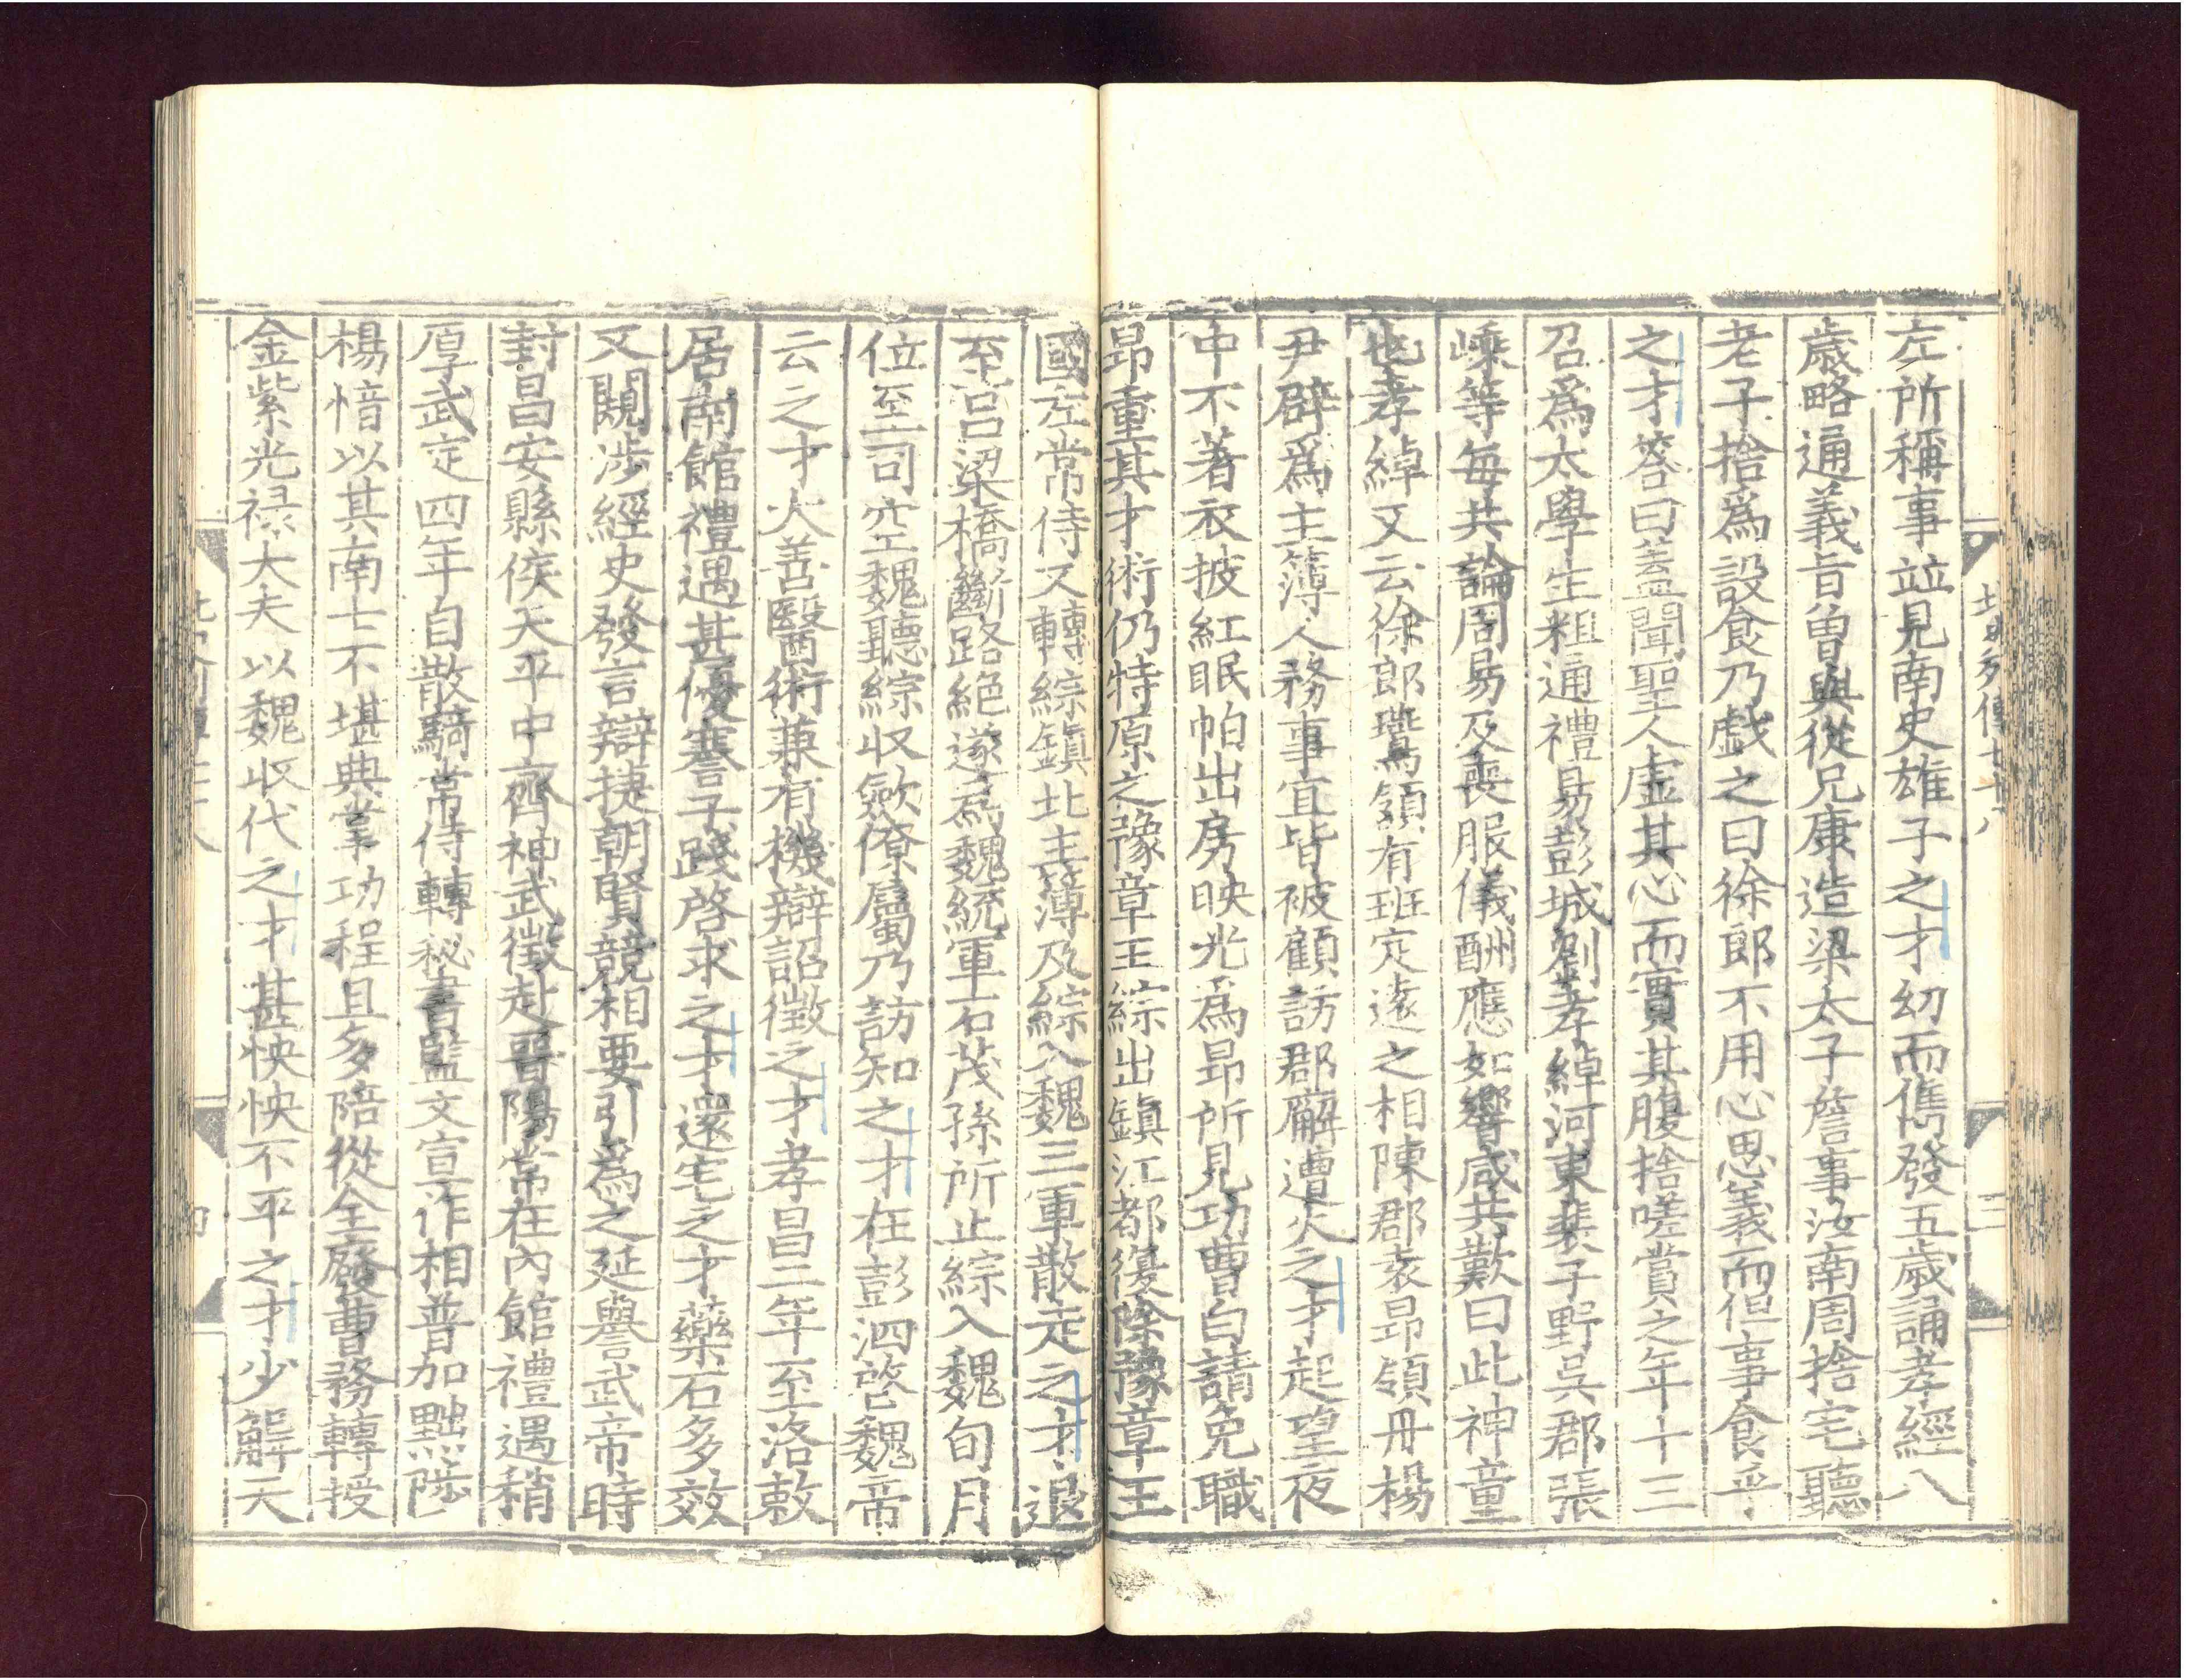 左所稱事竝見南史雄子之才幼而儁發五歲誦孝經八
歲略通義旨曽與從兄康造梁太子詹事汝南周捨宅聽
老子捨爲設食乃戯之曰徐郎不用心思義而但事食乎
之才荅曰盖聞聖人虛其心而實其腹捨嗟賞之年十三
召爲太學生粗通禮易彭城劉孝綽河東裴子野吳郡張
嵊等每共論周易及喪服儀酬應如響咸共歎曰此神童
也孝綽又云徐郎鷰頷有班定遠之相陳郡袁昂領丹楊
尹辟爲主簿人務事宜皆被顧訪郡廨遭火之才起望夜
中不著衣披紅眠帕出房映光爲昂所見功曹白請免職
昂重其才術仍特原之豫章王綜出鎮江都復除豫章王
國左常侍又轉綜鎮北主薄及綜入魏三軍散走之才退
至呂梁橋斷路絶遂爲魏統軍石茂孫所止綜入魏旬月
位至司空魏聽綜収歛僚屬乃訪知之才在彭泗啓魏帝
云之才大善醫術兼有機辯詔徵之才孝昌二年至洛敕
居南館禮遇甚優謇子踐啓求之才還宅之才藥石多效
又闚涉經史發言辯捷朝賢競相要引爲之延譽武帝時
封昌安縣侯天平中齊神武徵赴晉陽常在内館禮遇稍
厚武定四年自散騎常侍轉秘書監文宣作相普加黜陟
楊愔以其南士不堪典掌功程且多陪從全廢曹務轉授
金紫光禄大夫以魏收代之才甚怏怏不平之才少解天
北史列傳七十八
三